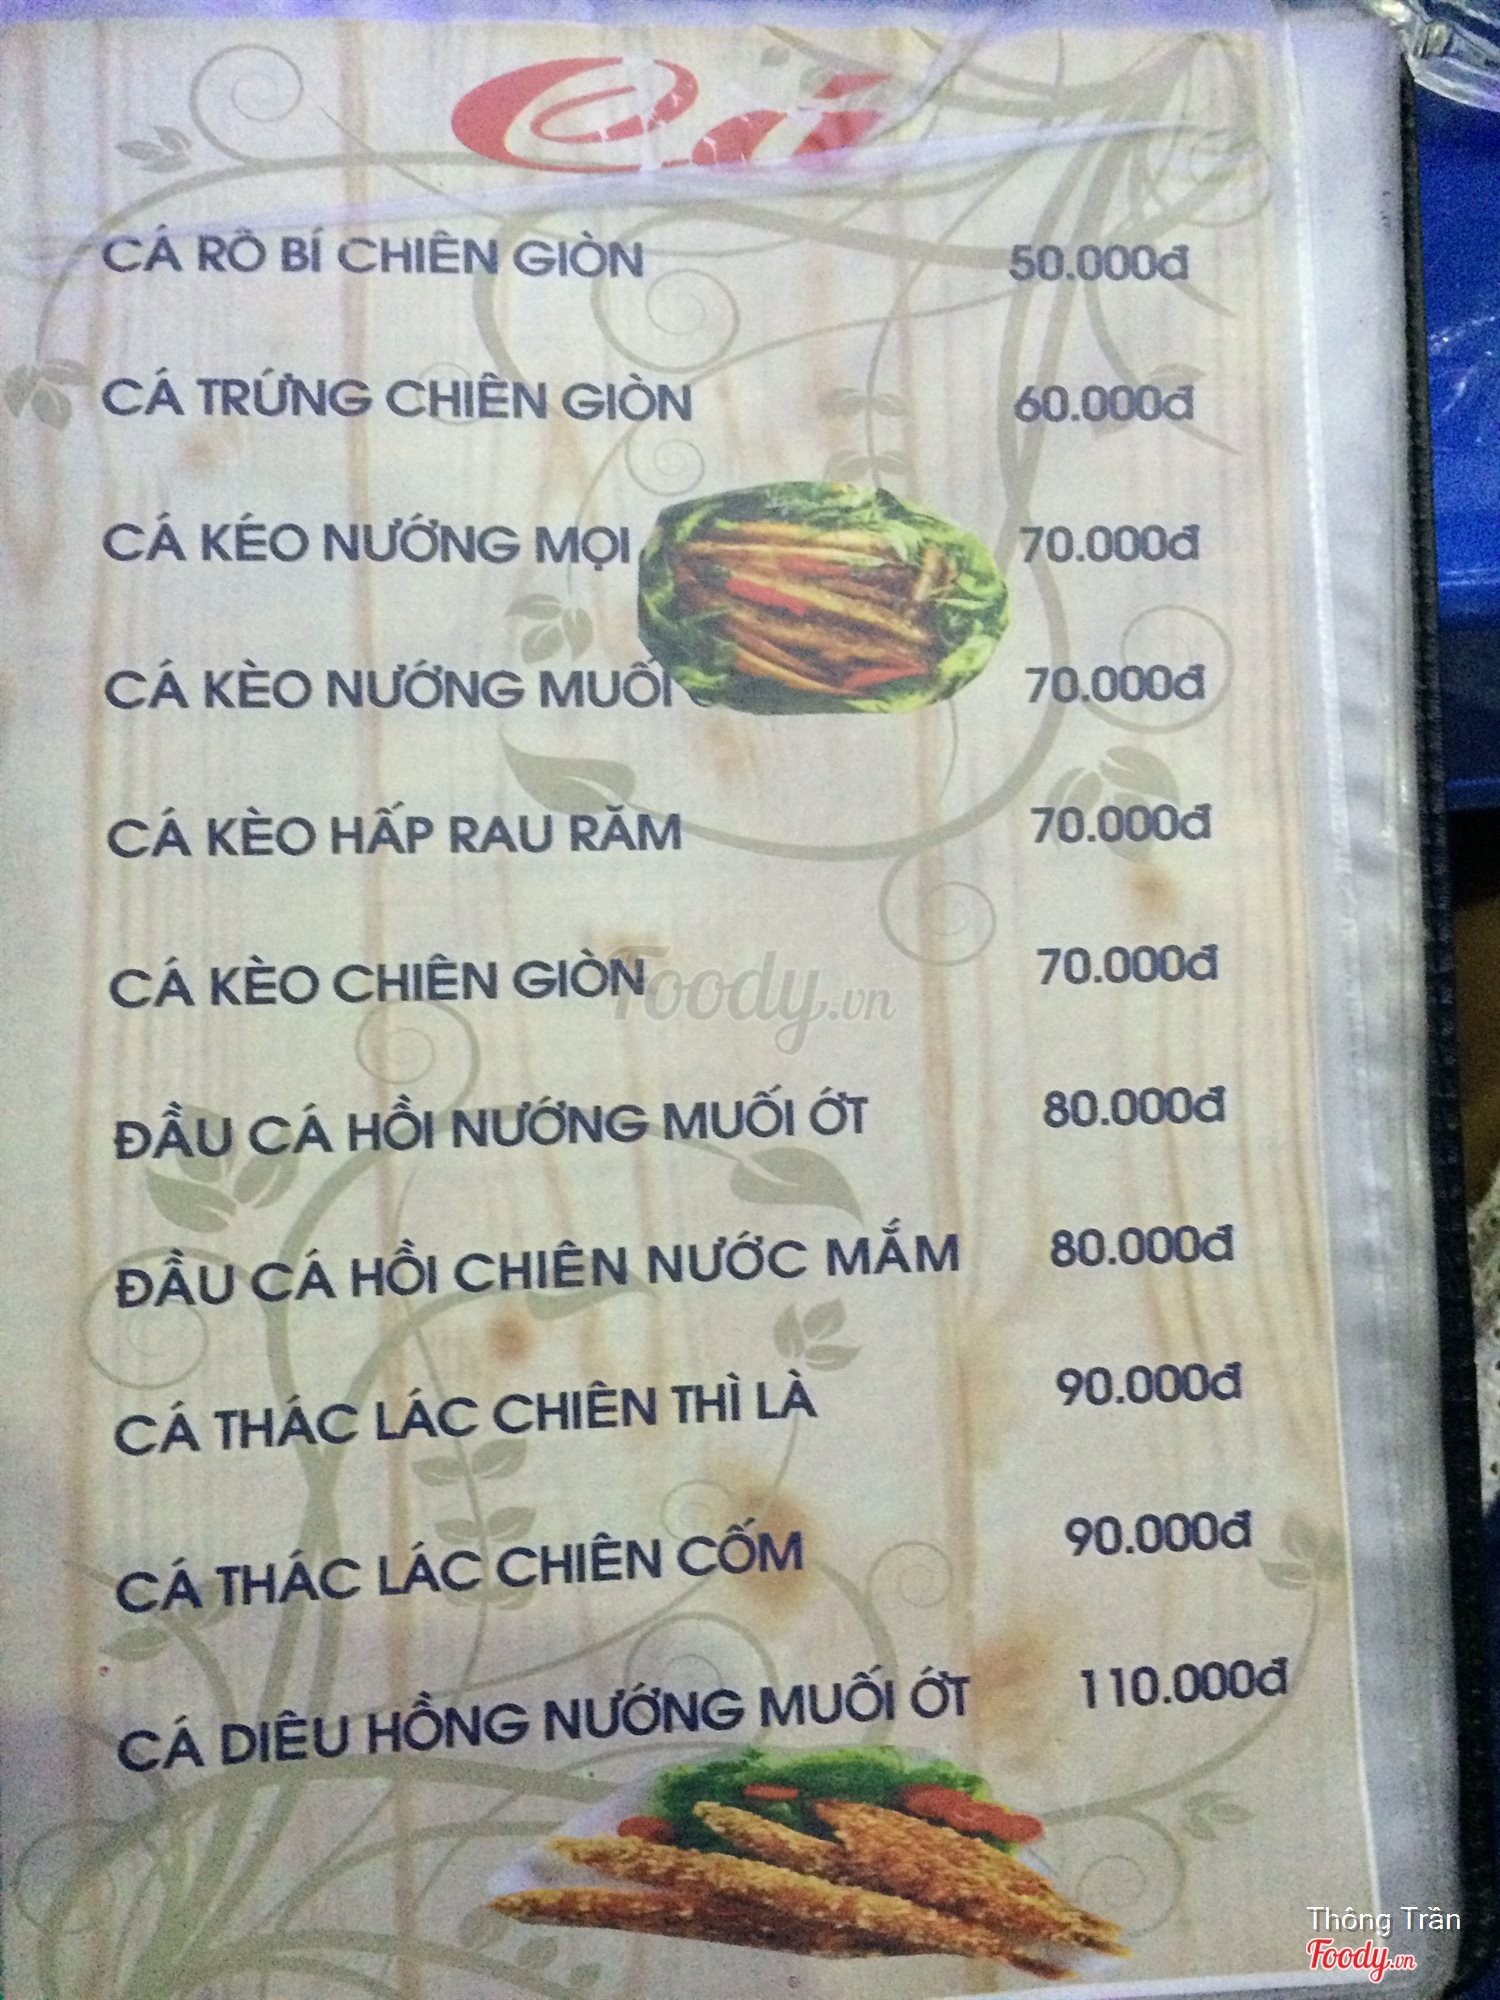 Cá
CÁ RÔ BÍ CHIÊN GIÒN 50.000đ
CÁ TRỨNG CHIÊN GIÒN 60.000đ
CÁ KÉO NƯỚNG MỌI 70.000đ
CÁ KÈO NƯỚNG MUỐI 70.000đ
CÁ KÈO HẤP RAU RĂM 70.000đ
CÁ KÈO CHIÊN GIÒN 70.000đ
Foody.vn
ĐẦU CÁ HỒI NƯỚNG MUỐI ỚT 80.000đ
ĐẦU CÁ HỒI CHIÊN NƯỚC MẮM 80.000đ
CÁ THÁC LÁC CHIÊN THÌ LÀ 90.000đ
CÁ THÁC LÁC CHIÊN CỐM 90.000đ
CÁ DIÊU HỒNG NƯỚNG MUỐI ỚT 110.000đ
Thông Trần
Foody.vn